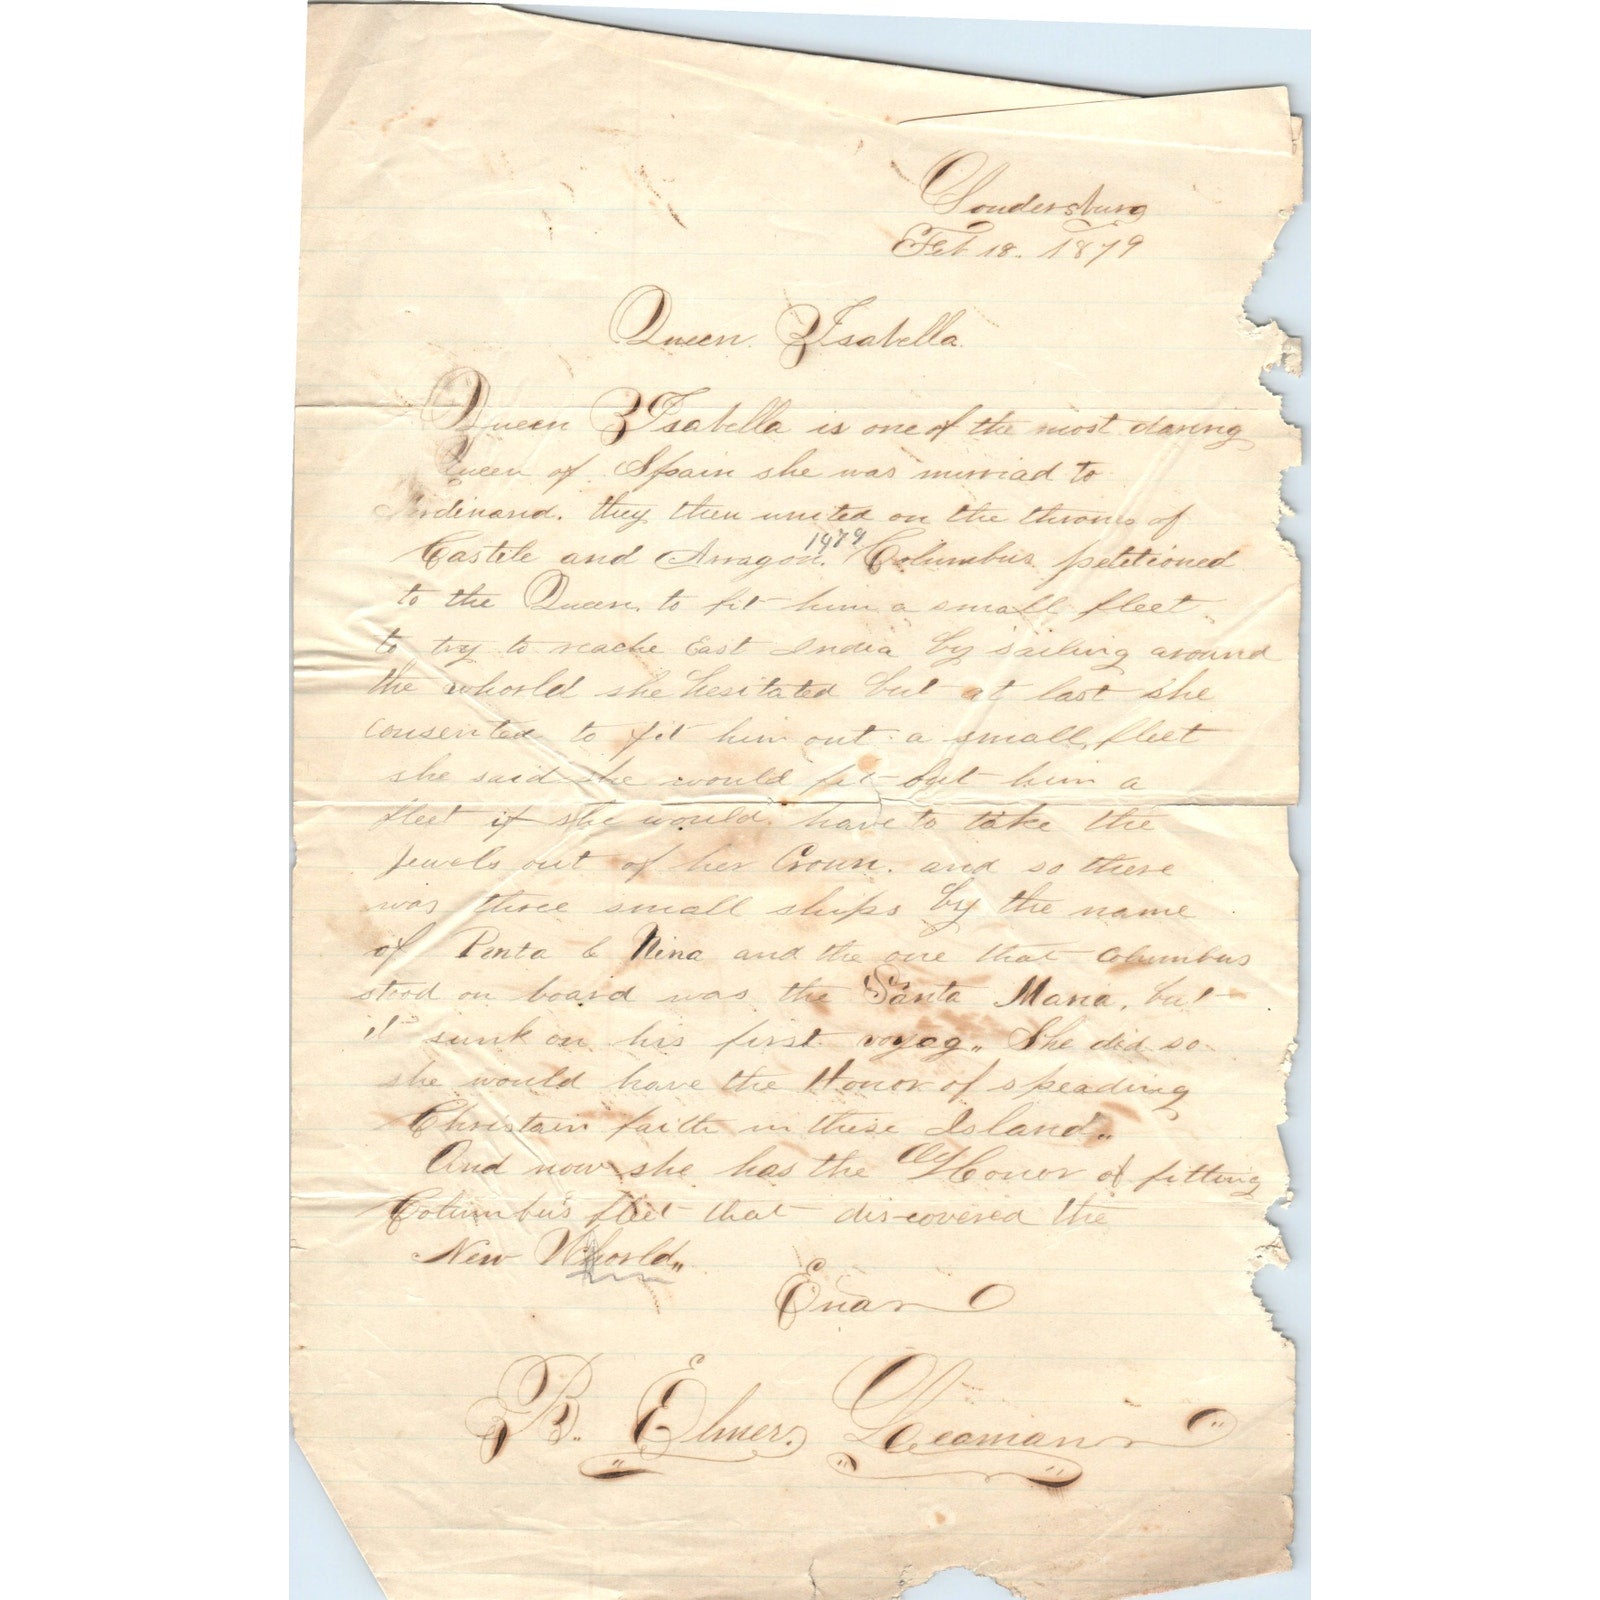 Soudersburg
Feb 18. 1879
Queen Isabella
Queen Isabella is one of the most daring
Queen of Spain she was murriad to
Ferdinand. they then united on the throns of
Castele and Arragon. 1479 Columbus petetioned
to the Queen. to fit him a small fleet
to try to reache East India by sailing around
the whorld she hesitated but at last she
consented to fit him out a small fleet
she said she would fit out him a
fleet if she would have to take the
jewels out of her Crown. and so there
was three small ships by the name
of Penta & Nina and the one that columbus
stood on board was the Santa Maria, but
it sunk on his first voyag,, She did so
she would have the Honor of speading
Christain faith in these Island,,
And now she has the Honor of fitting
Columbus fleet that discovered the
New Whorld,,
B. Elmer. Leaman